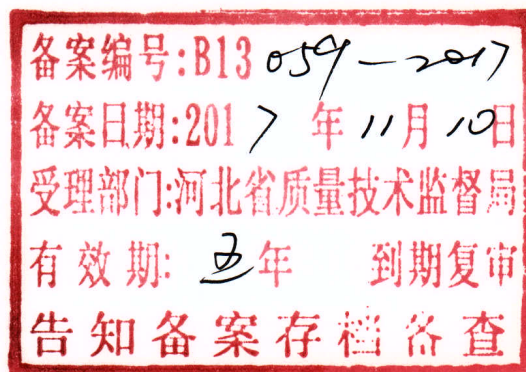 备案编号:B13 059-2017
备案日期:2017年11月10日
受理部门:河北省质量技术监督局
有效期:五年 到期复审
告知备案存档备查